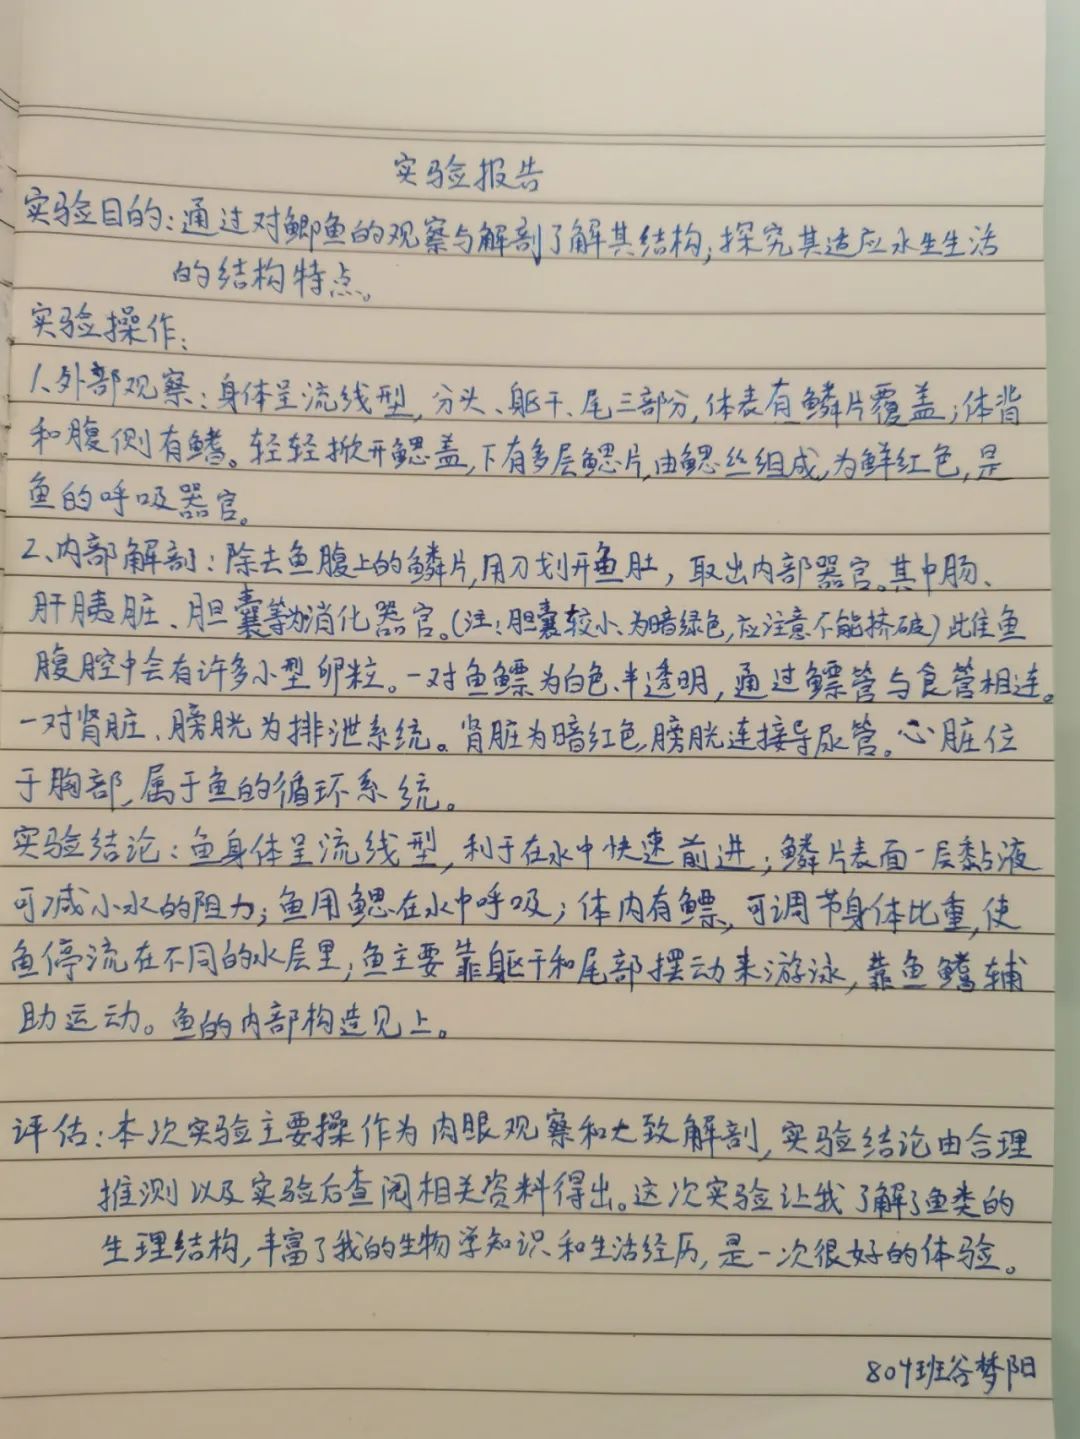 实验报告
实验目的：通过对鲫鱼的观察与解剖了解其结构；探究其适应水生生活
的结构特点。
实验操作：
1、外部观察：身体呈流线型，分头、躯干、尾三部分，体表有鳞片覆盖；体背
和腹侧有鳍。轻轻掀开鳃盖，下有多层鳃片，由鳃丝组成，为鲜红色，是
鱼的呼吸器官。
2、内部解剖：除去鱼腹上的鳞片，用刀划开鱼肚，取出内部器官。其中肠、
肝胰脏、胆囊等为消化器官。（注：胆囊较小、为暗绿色，应注意不能挤破）此雌鱼
腹腔中会有许多小型卵粒。一对鱼鳔为白色、半透明，通过鳔管与食管相连。
一对肾脏、膀胱为排泄系统。肾脏为暗红色，膀胱连接导尿管。心脏位
于胸部，属于鱼的循环系统。
实验结论：鱼身体呈流线型，利于在水中快速前进；鳞片表面一层黏液
可减小水的阻力；鱼用鳃在水中呼吸；体内有鳔，可调节身体比重，使
鱼停流在不同的水层里；鱼主要靠躯干和尾部摆动来游泳，靠鱼鳍辅
助运动。鱼的内部构造见上。
评估：本次实验主要操作为肉眼观察和大致解剖，实验结论由合理
推测以及实验后查阅相关资料得出。这次实验让我了解了鱼类的
生理结构，丰富了我的生物学知识和生活经历，是一次很好的体验。
804班谷梦阳